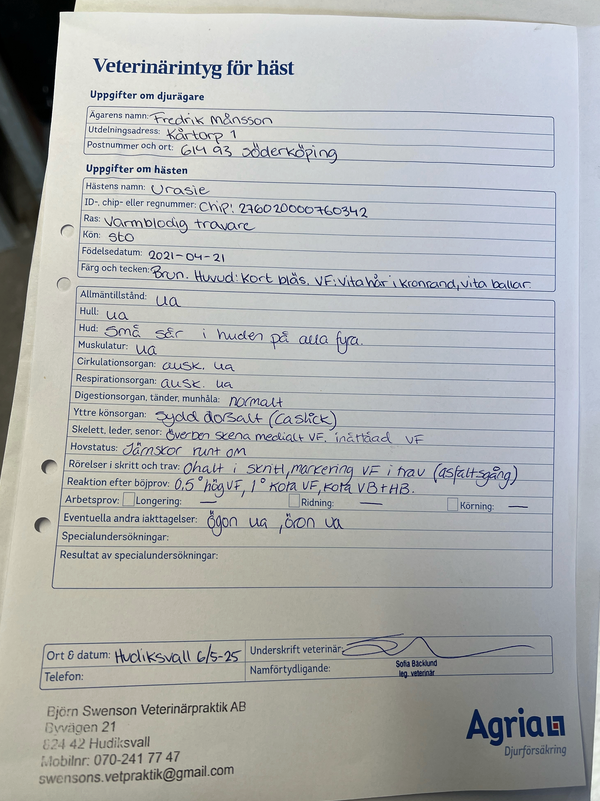 Veterinärintyg för häst
Uppgifter om djurägare
Ägarens namn: Fredrik Månsson
Utdelningsadress: Kårtorp 1
Postnummer och ort: 614 93 Söderköping
Uppgifter om hästen
Hästens namn: Urasie
ID-, chip- eller regnummer: Chip: 276020000760342
Ras: Varmblodig travare
Kön: Sto
Födelsedatum: 2021-04-21
Färg och tecken: Brun. Huvud: Kort bläs. VF: Vita hår i kronrand, vita ballar.
Allmäntillstånd: ua
Hull: ua
Hud: Små sår i huden på alla fyra.
Muskulatur: ua
Cirkulationsorgan: ausk. ua
Respirationsorgan: ausk. ua
Digestionsorgan, tänder, munhåla: normalt
Yttre könsorgan: Sydd dorsalt (caslick)
Skelett, leder, senor: Överben skena medialt VF. inåttåad VF
Hovstatus: Järnskor runt om
Rörelser i skritt och trav: Ohalt i skritt, markering VF i trav (asfaltsgång)
Reaktion efter böjprov: 0,5° hög VF, 1° Kota VF, Kota VB+HB.
Arbetsprov: Longering: — Ridning: — Körning: —
Eventuella andra iakttagelser: Ögon ua, öron ua
Specialundersökningar:
Resultat av specialundersökningar:
Ort & datum: Hudiksvall 6/5-25 Underskrift veterinär:
Telefon: Namförtydligande: Sofia Bäcklund
leg. veterinär
Björn Swenson Veterinärpraktik AB
Byvägen 21
824 42 Hudiksvall
Mobilnr: 070-241 77 47
swensons.vetpraktik@gmail.com
Agria
Djurförsäkring